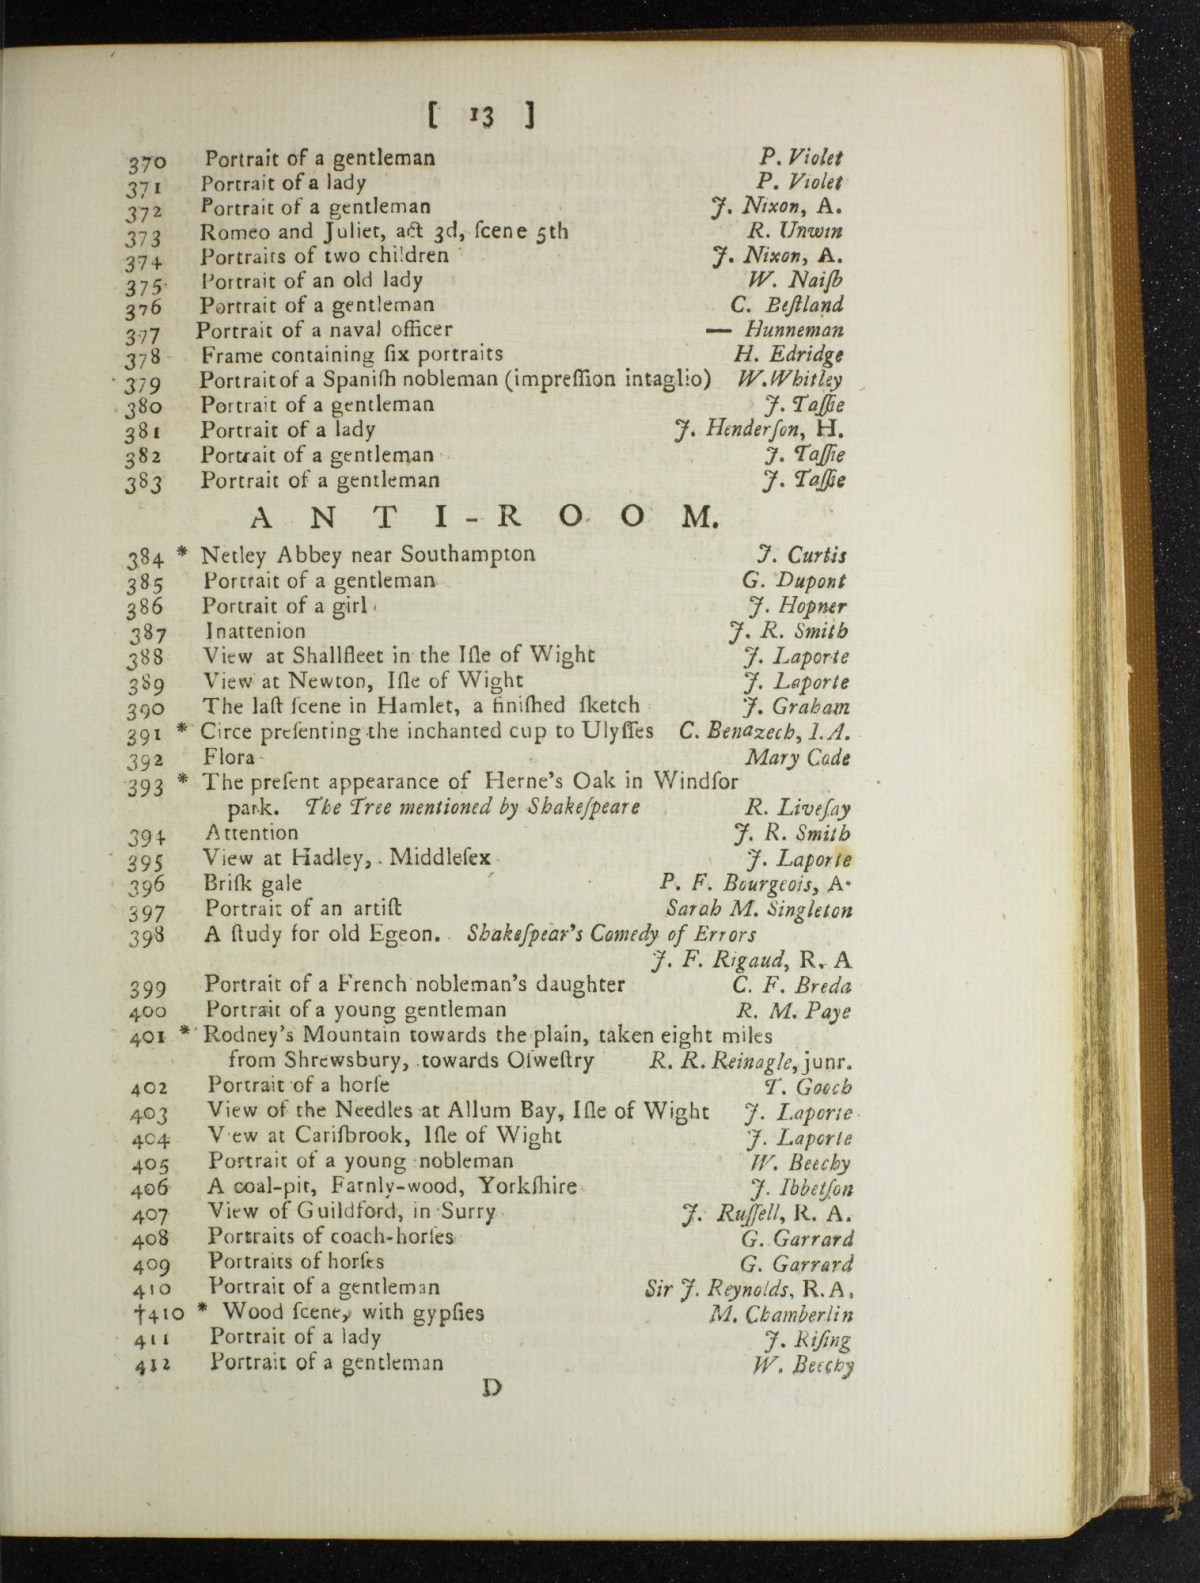 [ 13 ]
370 Portrait of a gentleman P. Violet
371 Portrait of a lady P. Violet
372 Portrait of a gentleman J. Nixon, A.
373 Romeo and Juliet, act 3d, ſcene 5th R. Unwin
374 Portraits of two children J. Nixon, A.
375 Portrait of an old lady W. Naiſh
376 Portrait of a gentleman C. Beſtland
377 Portrait of a naval officer — Hunneman
378 Frame containing ſix portraits H. Edridge
379 Portrait of a Spaniſh nobleman (impreſſion intaglio) W. Whitley
380 Portrait of a gentleman J. Taſſie
381 Portrait of a lady J. Henderſon, H.
382 Portrait of a gentleman J. Taſſie
383 Portrait of a gentleman J. Taſſie
ANTI-ROOM.
384 * Netley Abbey near Southampton J. Curtis
385 Portrait of a gentleman G. Dupont
386 Portrait of a girl J. Hopner
387 Inattenion J. R. Smith
388 View at Shallfleet in the Iſle of Wight J. Laporte
389 View at Newton, Iſle of Wight J. Laporte
390 The laſt ſcene in Hamlet, a finiſhed ſketch J. Graham
391 * Circe preſenting the inchanted cup to Ulyſſes C. Benazech, I.A.
392 Flora Mary Cade
393 * The preſent appearance of Herne's Oak in Windſor
park. The Tree mentioned by Shakeſpeare R. Liveſay
394 Attention J. R. Smith
395 View at Hadley, Middleſex J. Laporte
396 Briſk gale P. F. Bourgeois, A.
397 Portrait of an artiſt Sarah M. Singleton
398 A ſtudy for old Egeon. Shakeſpear's Comedy of Errors
J. F. Rigaud, R. A
399 Portrait of a French nobleman's daughter C. F. Breda
400 Portrait of a young gentleman R. M. Paye
401 * Rodney's Mountain towards the plain, taken eight miles
from Shrewsbury, towards Oſweſtry R. R. Reinagle, junr.
402 Portrait of a horſe T. Gooch
403 View of the Needles at Allum Bay, Iſle of Wight J. Laporte
404 V ew at Cariſbrook, Iſle of Wight J. Laporte
405 Portrait of a young nobleman W. Beechy
406 A coal-pit, Farnly-wood, Yorkſhire J. Ibbetſon
407 View of Guildford, in Surry J. Ruſſell, R. A.
408 Portraits of coach-horſes G. Garrard
409 Portraits of horſes G. Garrard
410 Portrait of a gentleman Sir J. Reynolds, R.A.
†410 * Wood ſcene, with gypſies M. Chamberlin
411 Portrait of a lady J. Riſing
412 Portrait of a gentleman W. Beechy
D